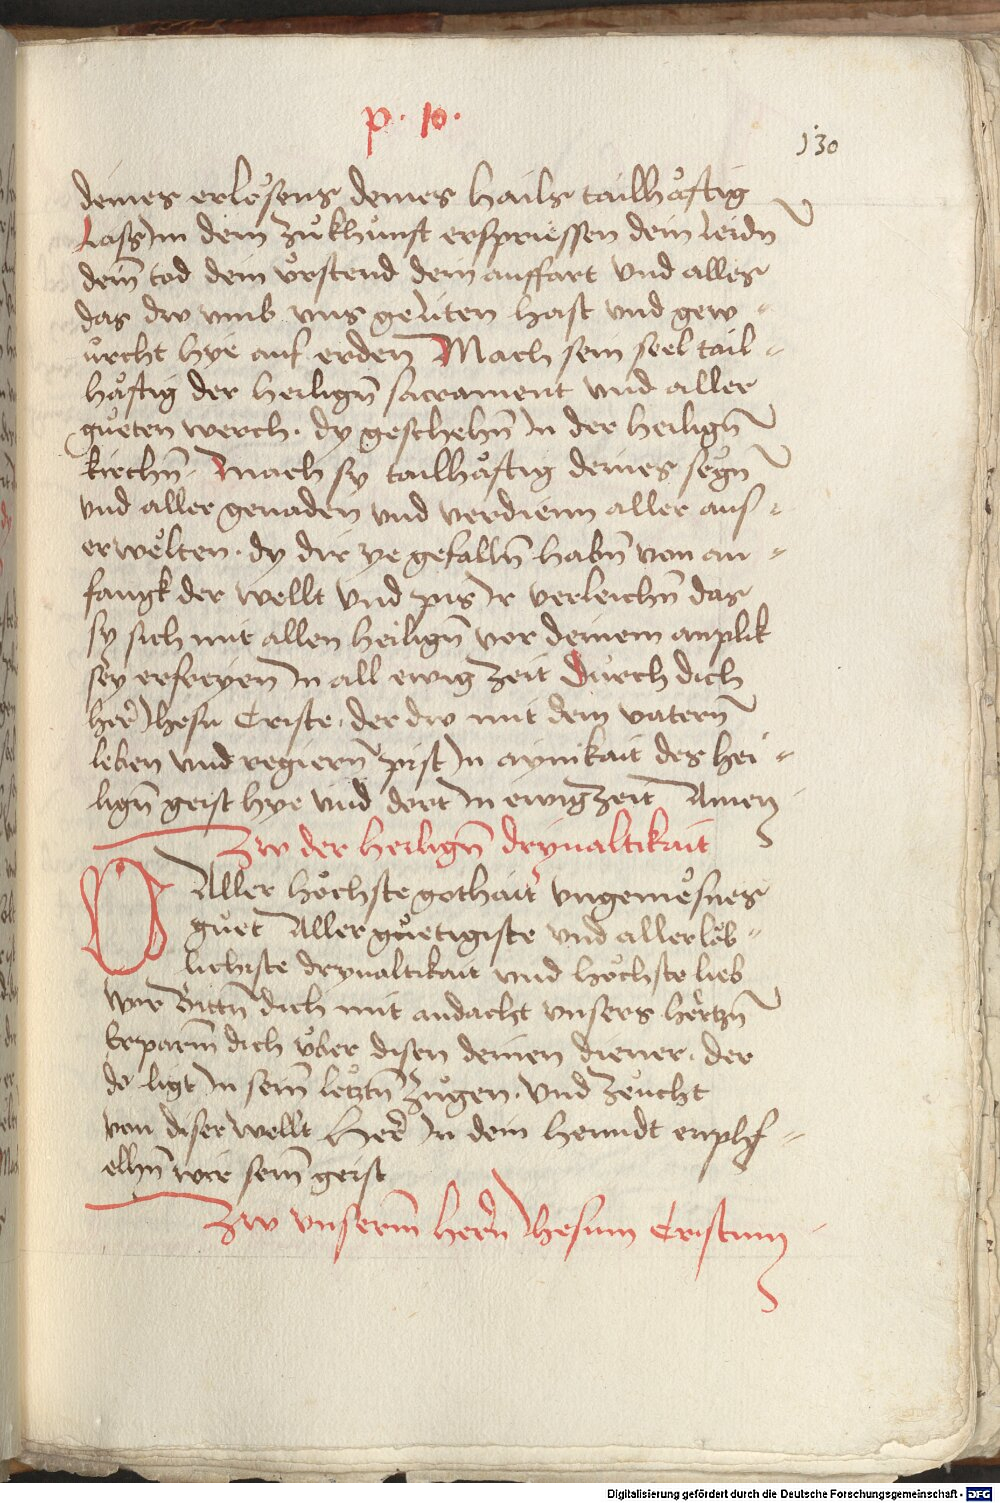 p. 10.
130
deines erlösens deines hails tailhäftig
Lass in dein zukhunft erspriessen dein leidn
dein tod dein ürstend dein auffart vnd alles
das dw vmb vns geliten hast vnd gew-
ürcht hye auf erden Mach sein seel tail-
häftig der heiligñ sacrament vnd aller
gueten werch. dy geschehñ in der heiligñ
kirchñ. mach sy tailhäftig deines segñ
vnd aller genaden vnd verdienn aller aus-
erwelten. dy dir ye gefallñ habñ von an-
fangk der wellt vnd pis ir verleichñ das
sy sich mit allen heiligñ vor deinem anplik
sey erfreyen in all ewig zeit durch dich
her ihesu Criste. der dw mit dem vatern
leben vnd regiern pist in aynikait des hei-
ligñ geist hye vnd dort in ewig zeit Amen
Zw der heiligñ dryualtikait
O Aller höchste gothait vngemesnes
guet Aller güetigiste vnd allerlöb-
lichiste dryualtikait vnd höchste lieb
wir bittn dich mit andacht vnsers hertzñ
Erparm dich vber disen deinen diener. der
do ligt in sein letztñ zügen. vnd zeücht
von diser wellt her in dein henndt enphf-
elhñ wir sein geist
Zw vnserm hern ihesum Cristum
Digitalisierung gefördert durch die Deutsche Forschungsgemeinschaft - DFG